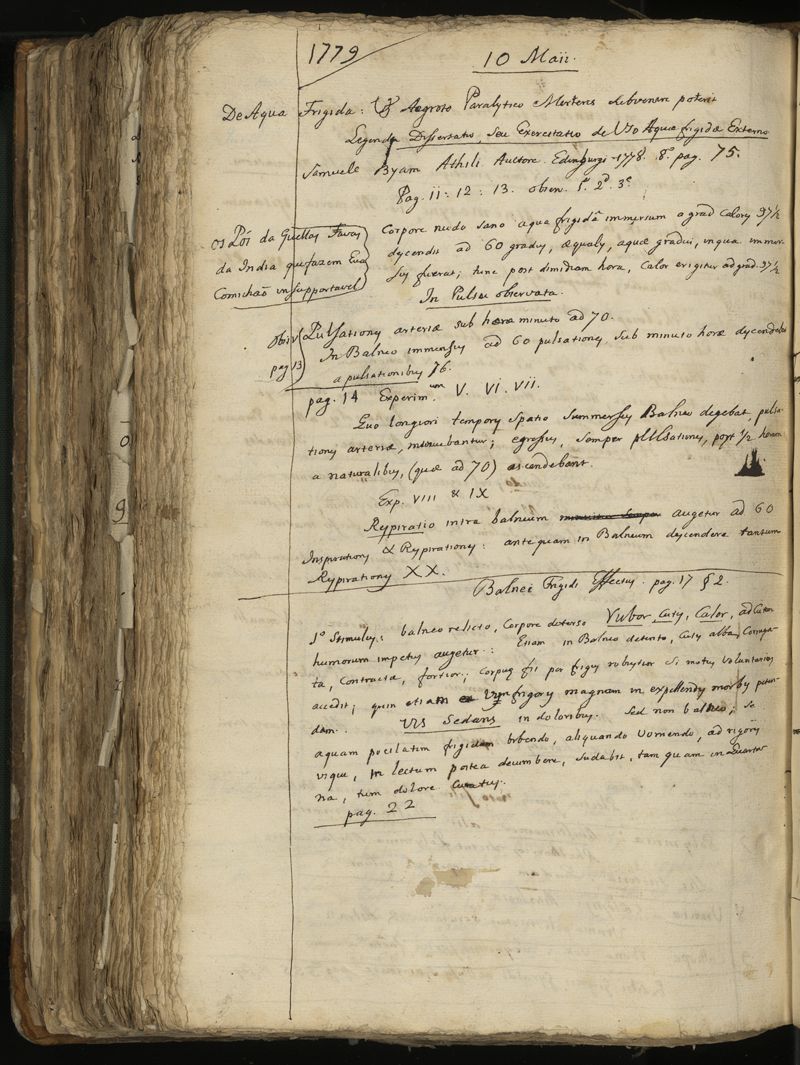 1779
10 Maii.
De Aqua Frigida: Aegroto Paralytico Martens subvenire poterit
Legenda Dissertatio, seu Exercitatio de Uso Aquae frigidae Externo
Samuele Byam Athill Auctore. Edinburgi - 1778. 8.º pag. 75.
Pag. 11: 12: 13. observ. 1.ª 2.ª 3.ª
Corpore nudo sano aqua frigidâ immersum a grad Caloris 97 1/2
dycendit ad 60 gradus, aequalis, aquae gradui, in qua immer
sus fuerat; tunc post dimidiam hora, Calor erigitur ad grad. 97 1/2
os Pós da Guellas Favas
da India que fazem Eua
Comichaõ insupportavel
In Pulsu observata.
observ
pag 13
Pulsationes arteriae sub horae minuto ad 70.
In Balneo immersus ad 60 pulsationes, sub minuto horae dycendebat
a pulsationibus 76.
pag. 14 Experim.um V. VI. VII.
Quo longiori temporis spatio summersus Balneo degebat, pulsa
tiones arteriae, minuebantur; egressus, semper pulsationes, post 1/2 horam
a naturalibus, (quae ad 70) ascendebant.
Exp. VIII & IX
Respiratio intra balneum augetur ad 60
Inspirationes & Respirationes: antequam in Balneum dycendere tantum
Respirationes XX.
Balnei Frigidi Effectus. pag. 17 § 2.
1.º Stimulus: balneo relicto, Corpore deterso Rubor Cutis, Calor, ad Cutem
humorum impetus augetur: Etiam in Balneo detento, Cutis alba, Corruga
ta, Contracta, fortior; Corpusq fit per frigus robustior si motus voluntarios
accedit; quin etiam Vim frigoris magnam in expellendis morbis
dam. Vis Sedans in doloribus. Sed non balneo; se
aquam poculatim frigidam bibendo, aliquando vomendo, ad rigoris
usque, in lectum postea decumbere, sudabit, tam quam in Quarta
na, tum dolore Curatus.
pag. 22